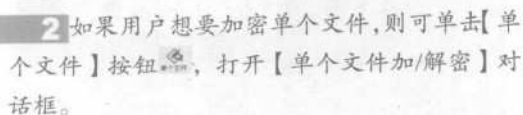 2 如果用户想要加密单个文件,则可单击【单
个文件】按钮 , 打开【单个文件加/解密】对
话框。